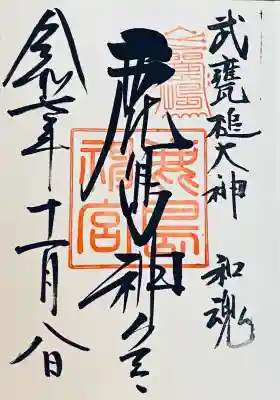 武甕槌大神 和魂
鹿島神宮
鹿島神宮
令和七年十一月八日